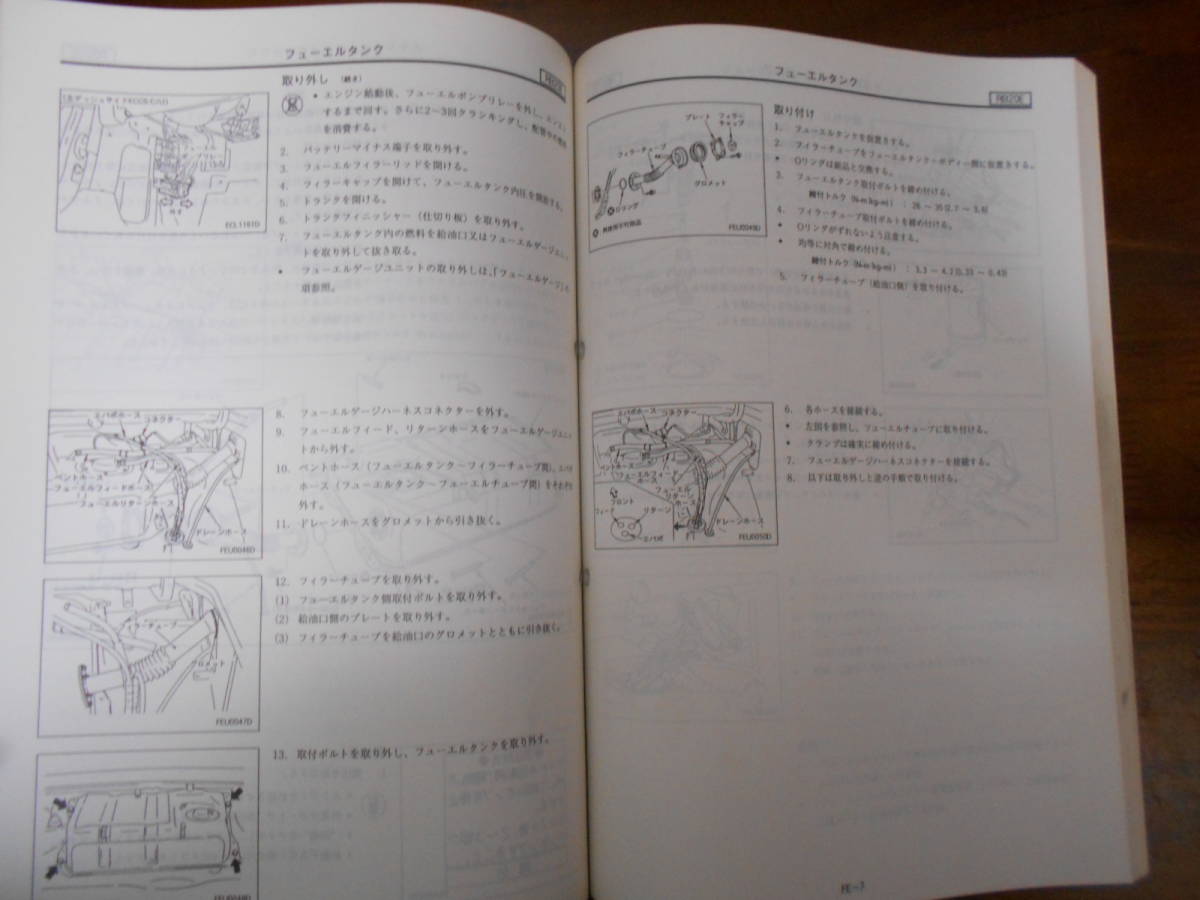 フューエルタンク
取り外し (続き)
• エンジン始動後、フューエルポンプリレーを外し、エンスト
するまで回す。さらに2～3回クランキングし、配管中の燃料
を消費する。
2. バッテリーマイナス端子を取り外す。
3. フューエルフィラーリッドを開ける。
4. フィラーキャップを開けて、フューエルタンク内圧を開放する。
5. トランクを開ける。
6. トランクフィニッシャー（仕切り板）を取り外す。
7. フューエルタンク内の燃料を給油口又はフューエルゲージユニッ
トを取り外して抜き取る。
• フューエルゲージユニットの取り外しは、「フューエルゲージ」の
項参照。
ECL1161D
8. フューエルゲージハーネスコネクターを外す。
9. フューエルフィード、リターンホースをフューエルゲージユニッ
トから外す。
10. ベントホース（フューエルタンク～フィラーチューブ間）、エバポ
ホース（フューエルタンク～フューエルチューブ間）をそれぞれ
外す。
11. ドレーンホースをグロメットから引き抜く。
エバポホース
コネクター
ベントホース
フューエルフィードホース
フューエルリターンホース
ドレーンホース
FEU0046D
12. フィラーチューブを取り外す。
(1) フューエルタンク側取付ボルトを取り外す。
(2) 給油口側のプレートを取り外す。
(3) フィラーチューブを給油口のグロメットとともに引き抜く。
フィラーチューブ
グロメット
FEU0047D
13. 取付ボルトを取り外し、フューエルタンクを取り外す。
FEU0048D
フューエルタンク
RB20E
取り付け
1. フューエルタンクを仮置きする。
2. フィラーチューブをフューエルタンク～ボディー間に仮置きする。
• Oリングは新品と交換する。
3. フューエルタンク取付ボルトを締め付ける。
締付トルク (N·m{kg-m}) : 26 ～ 35{2.7 ～ 3.6}
4. フィラーチューブ取付ボルトを締め付ける。
• Oリングがずれないよう注意する。
• 均等に対角で締め付ける。
締付トルク (N·m{kg-m}) : 3.3 ～ 4.2{0.33 ～ 0.43}
5. フィラーチューブ（給油口側）を取り付ける。
プレート
フィラー
キャップ
フィラーチューブ
グロメット
Oリング
再使用不可部品
FEU0049D
6. 各ホースを接続する。
• 左図を参照し、フューエルチューブに取り付ける。
• クランプは確実に締め付ける。
7. フューエルゲージハーネスコネクターを接続する。
8. 以下は取り外しと逆の手順で取り付ける。
エバポホース
コネクター
ベントホース
フューエルフィード
ホース
フューエル
リターン
ホース
フロント
フィード
リターン
エバポ
ドレーンホース
FEU0050D
FE-7